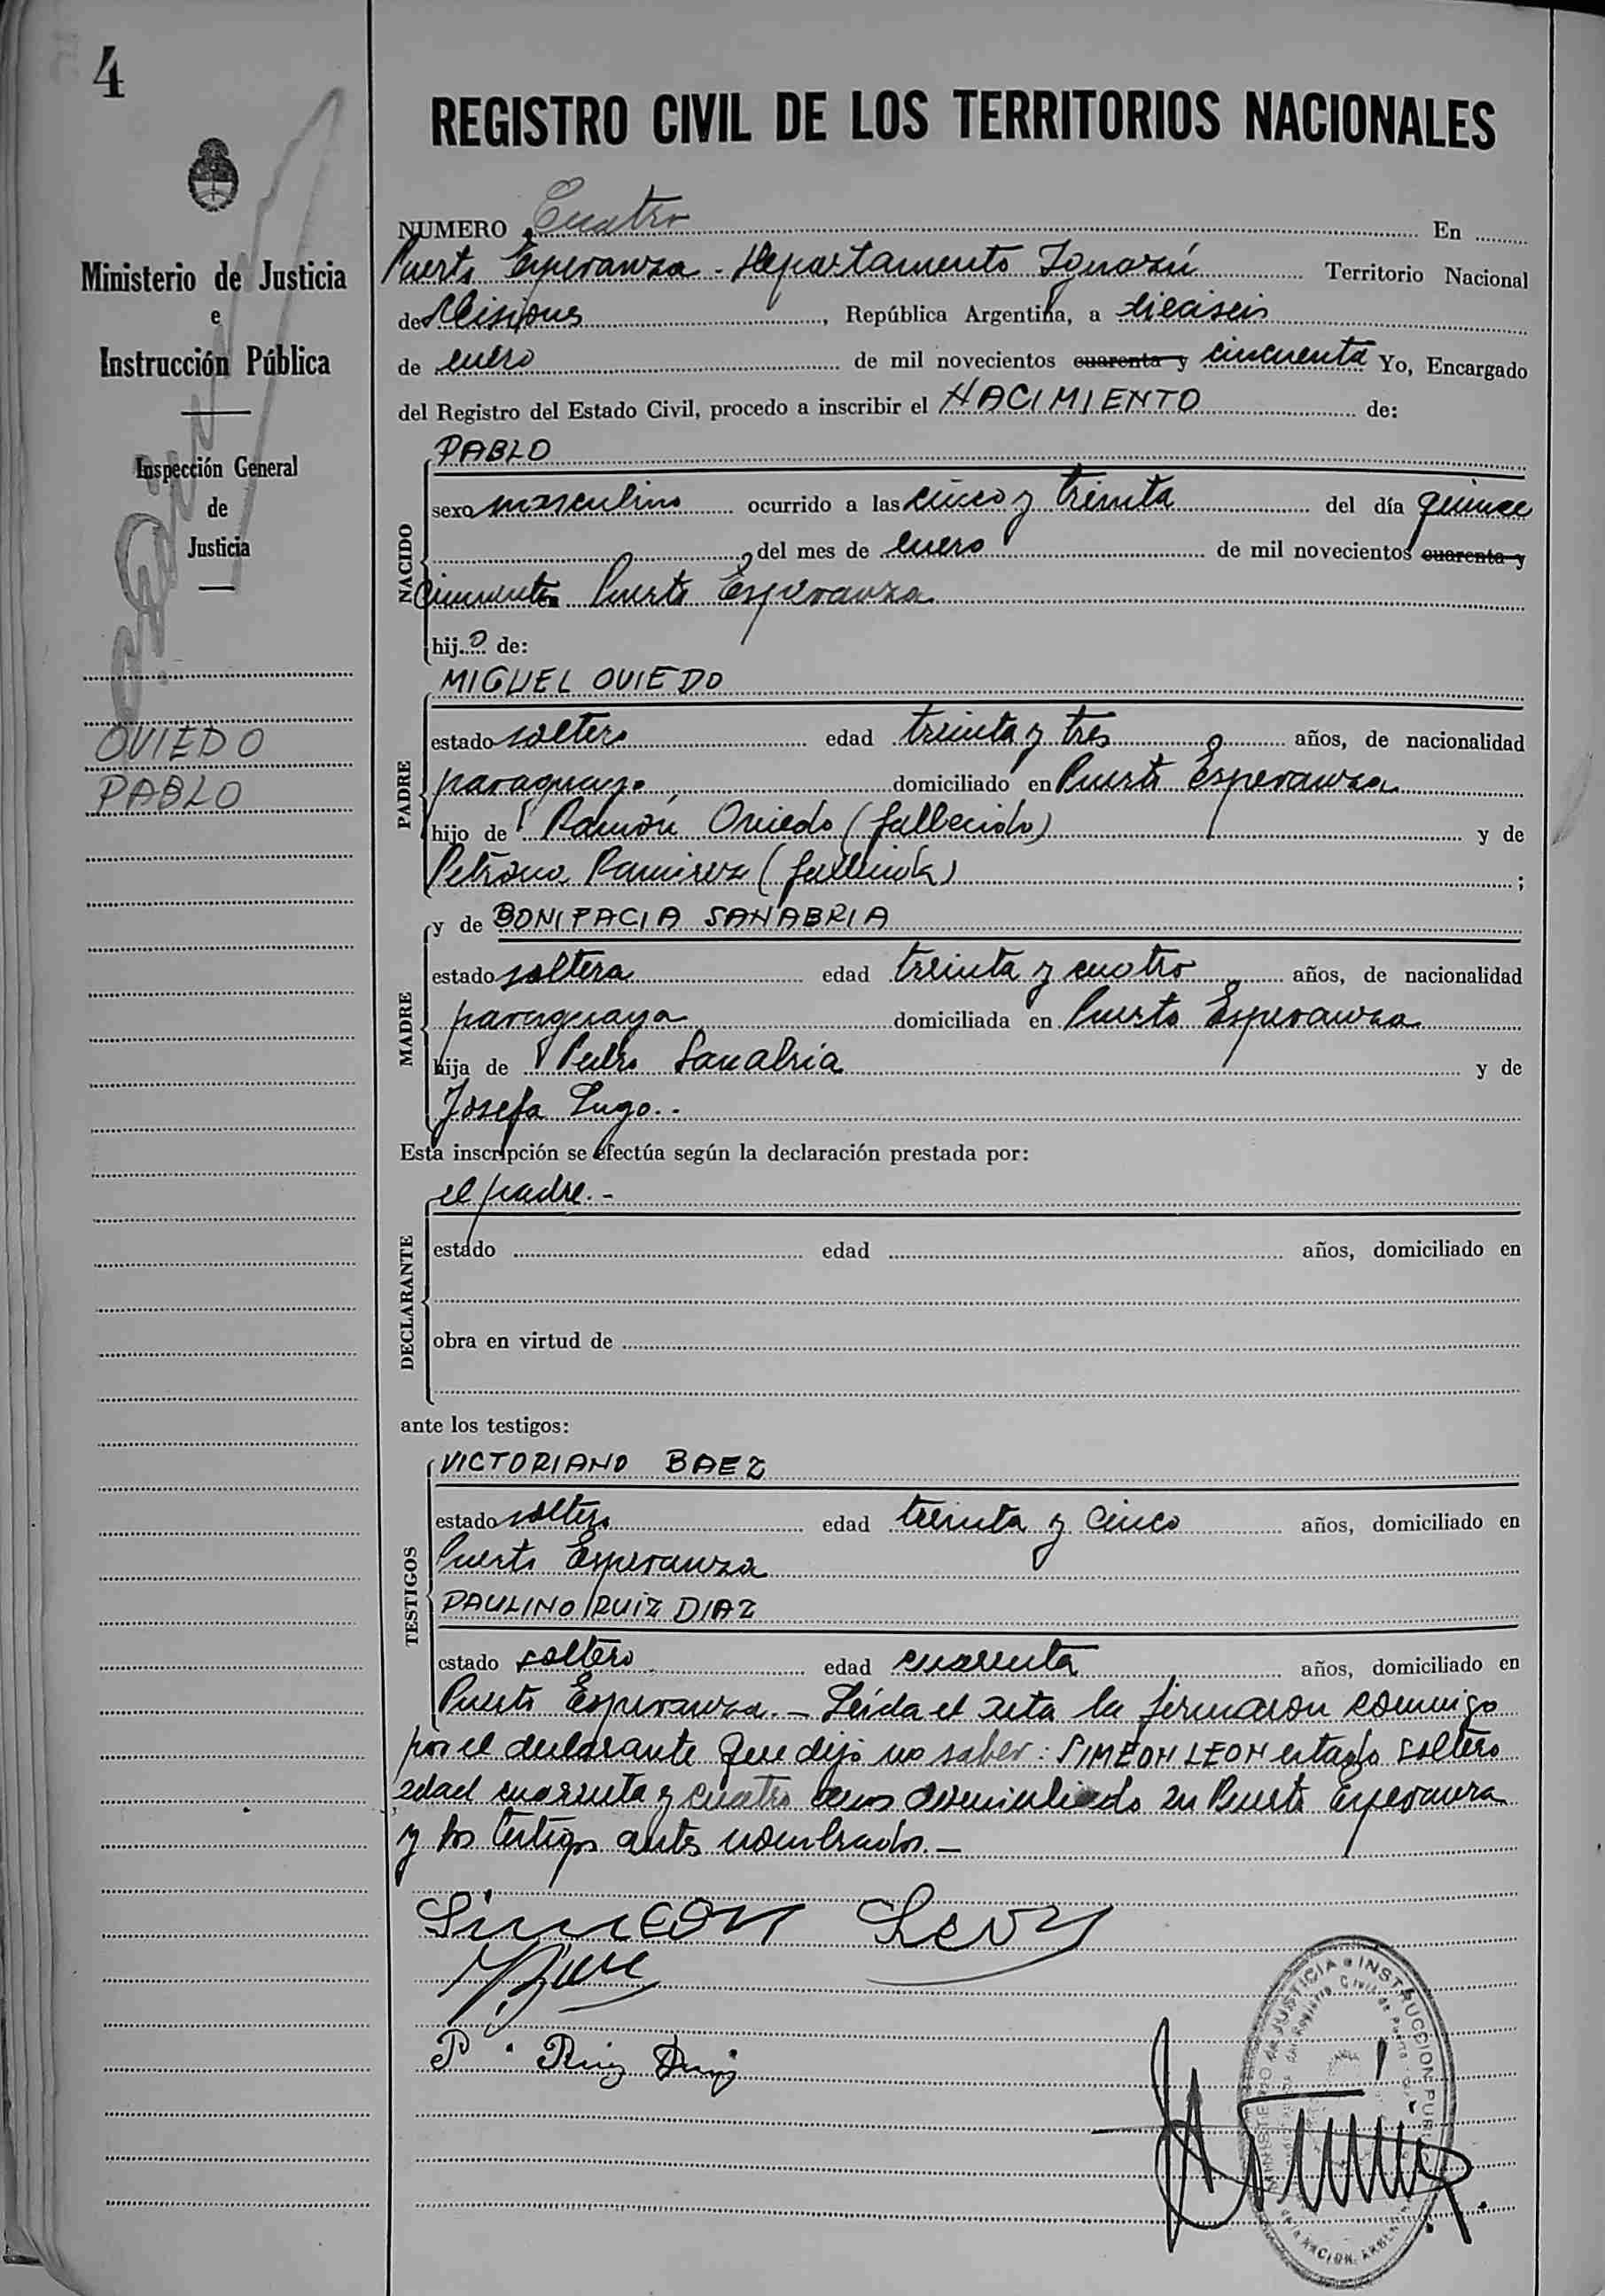 4
Ministerio de Justicia
e
Instrucción Pública
Inspección General
de
Justicia
OVIEDO
PABLO
REGISTRO CIVIL DE LOS TERRITORIOS NACIONALES
NUMERO Cuatro En
Puerto Esperanza - Departamento Iguazú Territorio Nacional
de Misiones, República Argentina, a dieciseis
de enero de mil novecientos cuarenta y cincuenta Yo, Encargado
del Registro del Estado Civil, procedo a inscribir el NACIMIENTO de:
NACIDO
PABLO
sexo masculino ocurrido a las cinco y treinta del día quince
del mes de enero de mil novecientos cuarenta y
cincuenta Puerto Esperanza
hijo de:
PADRE
MIGUEL OVIEDO
estado soltero edad treinta y tres años, de nacionalidad
paraguayo domiciliado en Puerto Esperanza
hijo de Ramón Oviedo (fallecido) y de
Petrona Ramirez (fallecida) ;
MADRE
y de BONIFACIA SANABRIA
estado soltera edad treinta y cuatro años, de nacionalidad
paraguaya domiciliada en Puerto Esperanza
hija de Pedro Sanabria y de
Josefa Lugo.-
Esta inscripción se efectúa según la declaración prestada por:
DECLARANTE
el padre.-
estado edad años, domiciliado en
obra en virtud de
ante los testigos:
TESTIGOS
VICTORIANO BAEZ
estado soltero edad treinta y cinco años, domiciliado en
Puerto Esperanza
PAULINO RUIZ DIAZ
estado soltero edad cuarenta años, domiciliado en
Puerto Esperanza.- Leída el acta la firmaron conmigo
por el declarante que dijo no saber: SIMEON LEON estado soltero
edad cuarenta y cuatro años domiciliado en Puerto Esperanza
y los testigos antes nombrados.-
Simeon Leon
P. Ruiz Diaz
MINISTERIO DE JUSTICIA e INSTRUCCION PUBLICA
Registro Civil de Puerto
de la NACION ARGENTINA